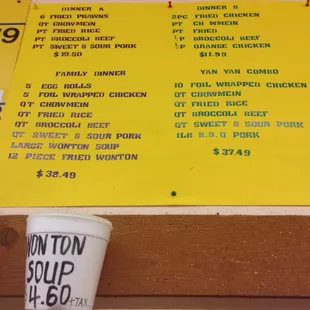 DINNER A
6 FRIED PRAWNS
QT CHOWMEIN
PT FRIED RICE
PT BROCOLLI BEEF
PT SWEET & SOUR PORK
$19.50
DINNER B
2PC FRIED CHICKEN
PT CHOWMEIN
PT FRIED
½P BROCOLLI BEEF
½P ORANGE CHICKEN
FAMILY DINNER
5 EGG ROLLS
5 FOIL WRAPPED CHICKEN
QT CHOWMEIN
QT FRIED RICE
QT BROCOLLI BEEF
QT SWEET & SOUR PORK
LARGE WONTON SOUP
12 PIECE FRIED WONTON
$38.49
YAN YAN COMBO
10 FOIL WRAPPED CHICKEN
QT CHOWMEIN
QT FRIED RICE
QT BROCOLLI BEEF
QT SWEET & SOUR PORK
1LB B.B.Q PORK
$37.49
WONTON
SOUP
$4.60
+TAX